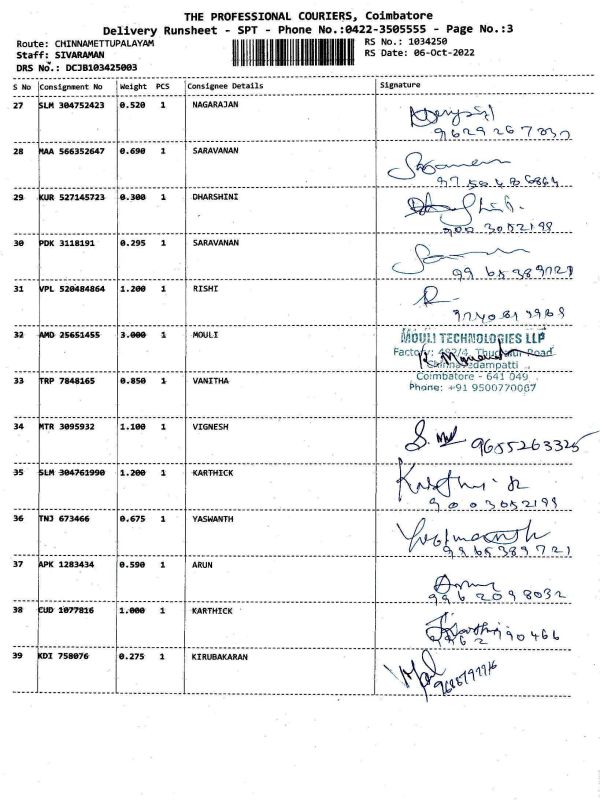 THE PROFESSIONAL COURIERS, Coimbatore
Delivery Runsheet - SPT - Phone No.:0422-3505555 - Page No.:3
Route: CHINNAMETTUPALAYAM RS No.: 1034250
Staff: SIVARAMAN RS Date: 06-Oct-2022
DRS No.: DCJB103425003
S No Consignment No Weight PCS Consignee Details Signature
27 SLM 304752423 0.520 1 NAGARAJAN
28 MAA 566352647 0.690 1 SARAVANAN
29 KUR 527145723 0.300 1 DHARSHINI
9003052199
30 PDK 3118191 0.295 1 SARAVANAN
9965389721
31 VPL 520484864 1.200 1 RISHI
R
32 AMD 25651455 3.000 1 MOULI
MOULI TECHNOLOGIES LLP
Factory: 482/4, Road
Chinnavedampatti
Coimbatore - 641 049
Phone: +91 9500770067
33 TRP 7848165 0.850 1 VANITHA
34 MTR 3095932 1.100 1 VIGNESH
9655263325
35 SLM 304761990 1.200 1 KARTHICK
9003052199
36 TNJ 673466 0.675 1 YASWANTH
9965389721
37 APK 1283434 0.590 1 ARUN
9962098032
38 CUD 1077816 1.000 1 KARTHICK
39 KDI 758076 0.275 1 KIRUBAKARAN